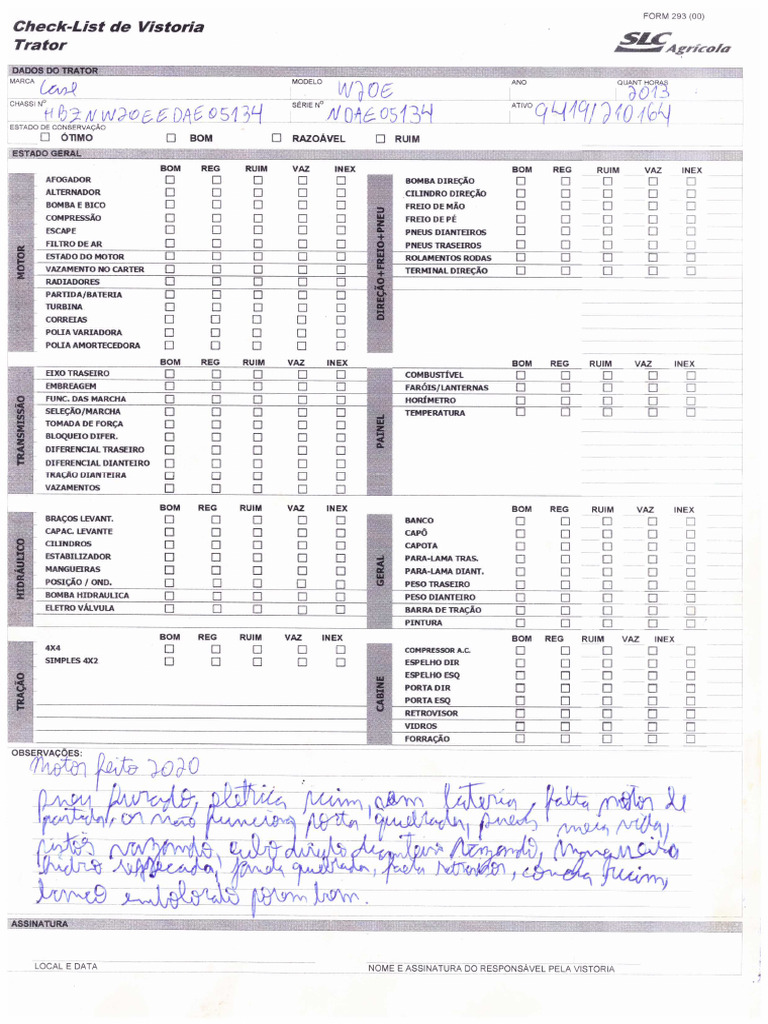 FORM 293 (00)
Check-List de Vistoria
Trator
SLC Agrícola
DADOS DO TRATOR
MARCA Case MODELO W20E ANO QUANT HORAS 2013
CHASSI Nº HBZNW20EEDAE05134 SÉRIE Nº NDAE05134 ATIVO 9419/210164
ESTADO DE CONSERVAÇÃO
ÓTIMO BOM RAZOÁVEL RUIM
ESTADO GERAL
MOTOR
BOM REG RUIM VAZ INEX
AFOGADOR
ALTERNADOR
BOMBA E BICO
COMPRESSÃO
ESCAPE
FILTRO DE AR
ESTADO DO MOTOR
VAZAMENTO NO CARTER
RADIADORES
PARTIDA/BATERIA
TURBINA
CORREIAS
POLIA VARIADORA
POLIA AMORTECEDORA
DIREÇÃO+FREIO+PNEU
BOM REG RUIM VAZ INEX
BOMBA DIREÇÃO
CILINDRO DIREÇÃO
FREIO DE MÃO
FREIO DE PÉ
PNEUS DIANTEIROS
PNEUS TRASEIROS
ROLAMENTOS RODAS
TERMINAL DIREÇÃO
TRANSMISSÃO
BOM REG RUIM VAZ INEX
EIXO TRASEIRO
EMBREAGEM
FUNC. DAS MARCHA
SELEÇÃO/MARCHA
TOMADA DE FORÇA
BLOQUEIO DIFER.
DIFERENCIAL TRASEIRO
DIFERENCIAL DIANTEIRO
TRAÇÃO DIANTEIRA
VAZAMENTOS
PAINEL
BOM REG RUIM VAZ INEX
COMBUSTÍVEL
FARÓIS/LANTERNAS
HORÍMETRO
TEMPERATURA
HIDRÁULICO
BOM REG RUIM VAZ INEX
BRAÇOS LEVANT.
CAPAC. LEVANTE
CILINDROS
ESTABILIZADOR
MANGUEIRAS
POSIÇÃO / OND.
BOMBA HIDRAULICA
ELETRO VÁLVULA
GERAL
BOM REG RUIM VAZ INEX
BANCO
CAPÔ
CAPOTA
PARA-LAMA TRAS.
PARA-LAMA DIANT.
PESO TRASEIRO
PESO DIANTEIRO
BARRA DE TRAÇÃO
PINTURA
TRAÇÃO
BOM REG RUIM VAZ INEX
4X4
SIMPLES 4X2
CABINE
BOM REG RUIM VAZ INEX
COMPRESSOR A.C.
ESPELHO DIR
ESPELHO ESQ
PORTA DIR
PORTA ESQ
RETROVISOR
VIDROS
FORRAÇÃO
OBSERVAÇÕES:
Motor feito 2020
pneu furado, eletrica ruim, sem bateria, falta motor de
partida, ar não funciona porta quebrada, pneus meia vida,
vazando, direção vazando, mangueira
hidro ressecada, quebrada, concha ruim,
banco porem bom.
ASSINATURA
LOCAL E DATA
NOME E ASSINATURA DO RESPONSÁVEL PELA VISTORIA